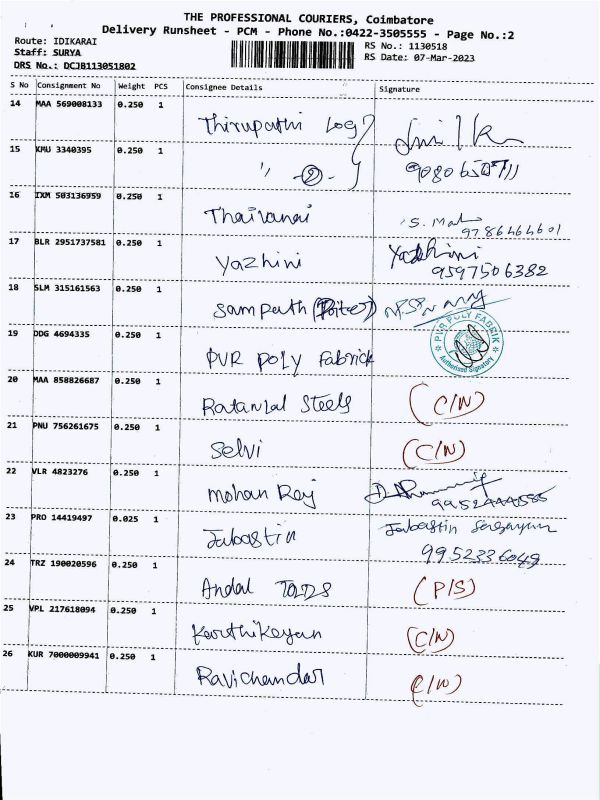 THE PROFESSIONAL COURIERS, Coimbatore
Delivery Runsheet - PCM - Phone No.:0422-3505555 - Page No.:2
Route: IDIKARAI
RS No.: 1130518
Staff: SURYA
RS Date: 07-Mar-2023
DRS No.: DCJB113051802
S No Consignment No Weight PCS Consignee Details Signature
14 MAA 569008133 0.250 1 Thirupathi Log
15 KMU 3340395 0.250 1 " ②
16 IXM 503136959 0.250 1 Thaivanai S.
9786464601
17 BLR 2951737581 0.250 1 Yazhini Yazhini
9597506382
18 SLM 315161563 0.250 1 Sampath
19 DDG 4694335 0.250 1 PVR Poly Fabrick PVR POLY FABRIK
Authorised Signatory
20 MAA 858826687 0.250 1 Ratanlal Steels (C/N)
21 PNU 756261675 0.250 1 Selvi (C/N)
22 VLR 4823276 0.250 1 Mohan Raj
23 PRO 14419497 0.025 1 Jabastin Jabastin
9952336049
24 TRZ 190020596 0.250 1 Andal (P/S)
25 VPL 217618094 0.250 1 Karthikeyan (C/N)
26 KUR 7000009941 0.250 1 Ravichandar (C/N)